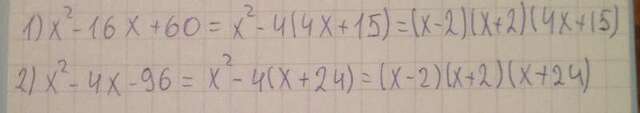 1) x² - 16x + 60 = x² - 4(4x + 15) = (x-2)(x+2)(4x+15)
2) x² - 4x - 96 = x² - 4(x + 24) = (x-2)(x+2)(x+24)